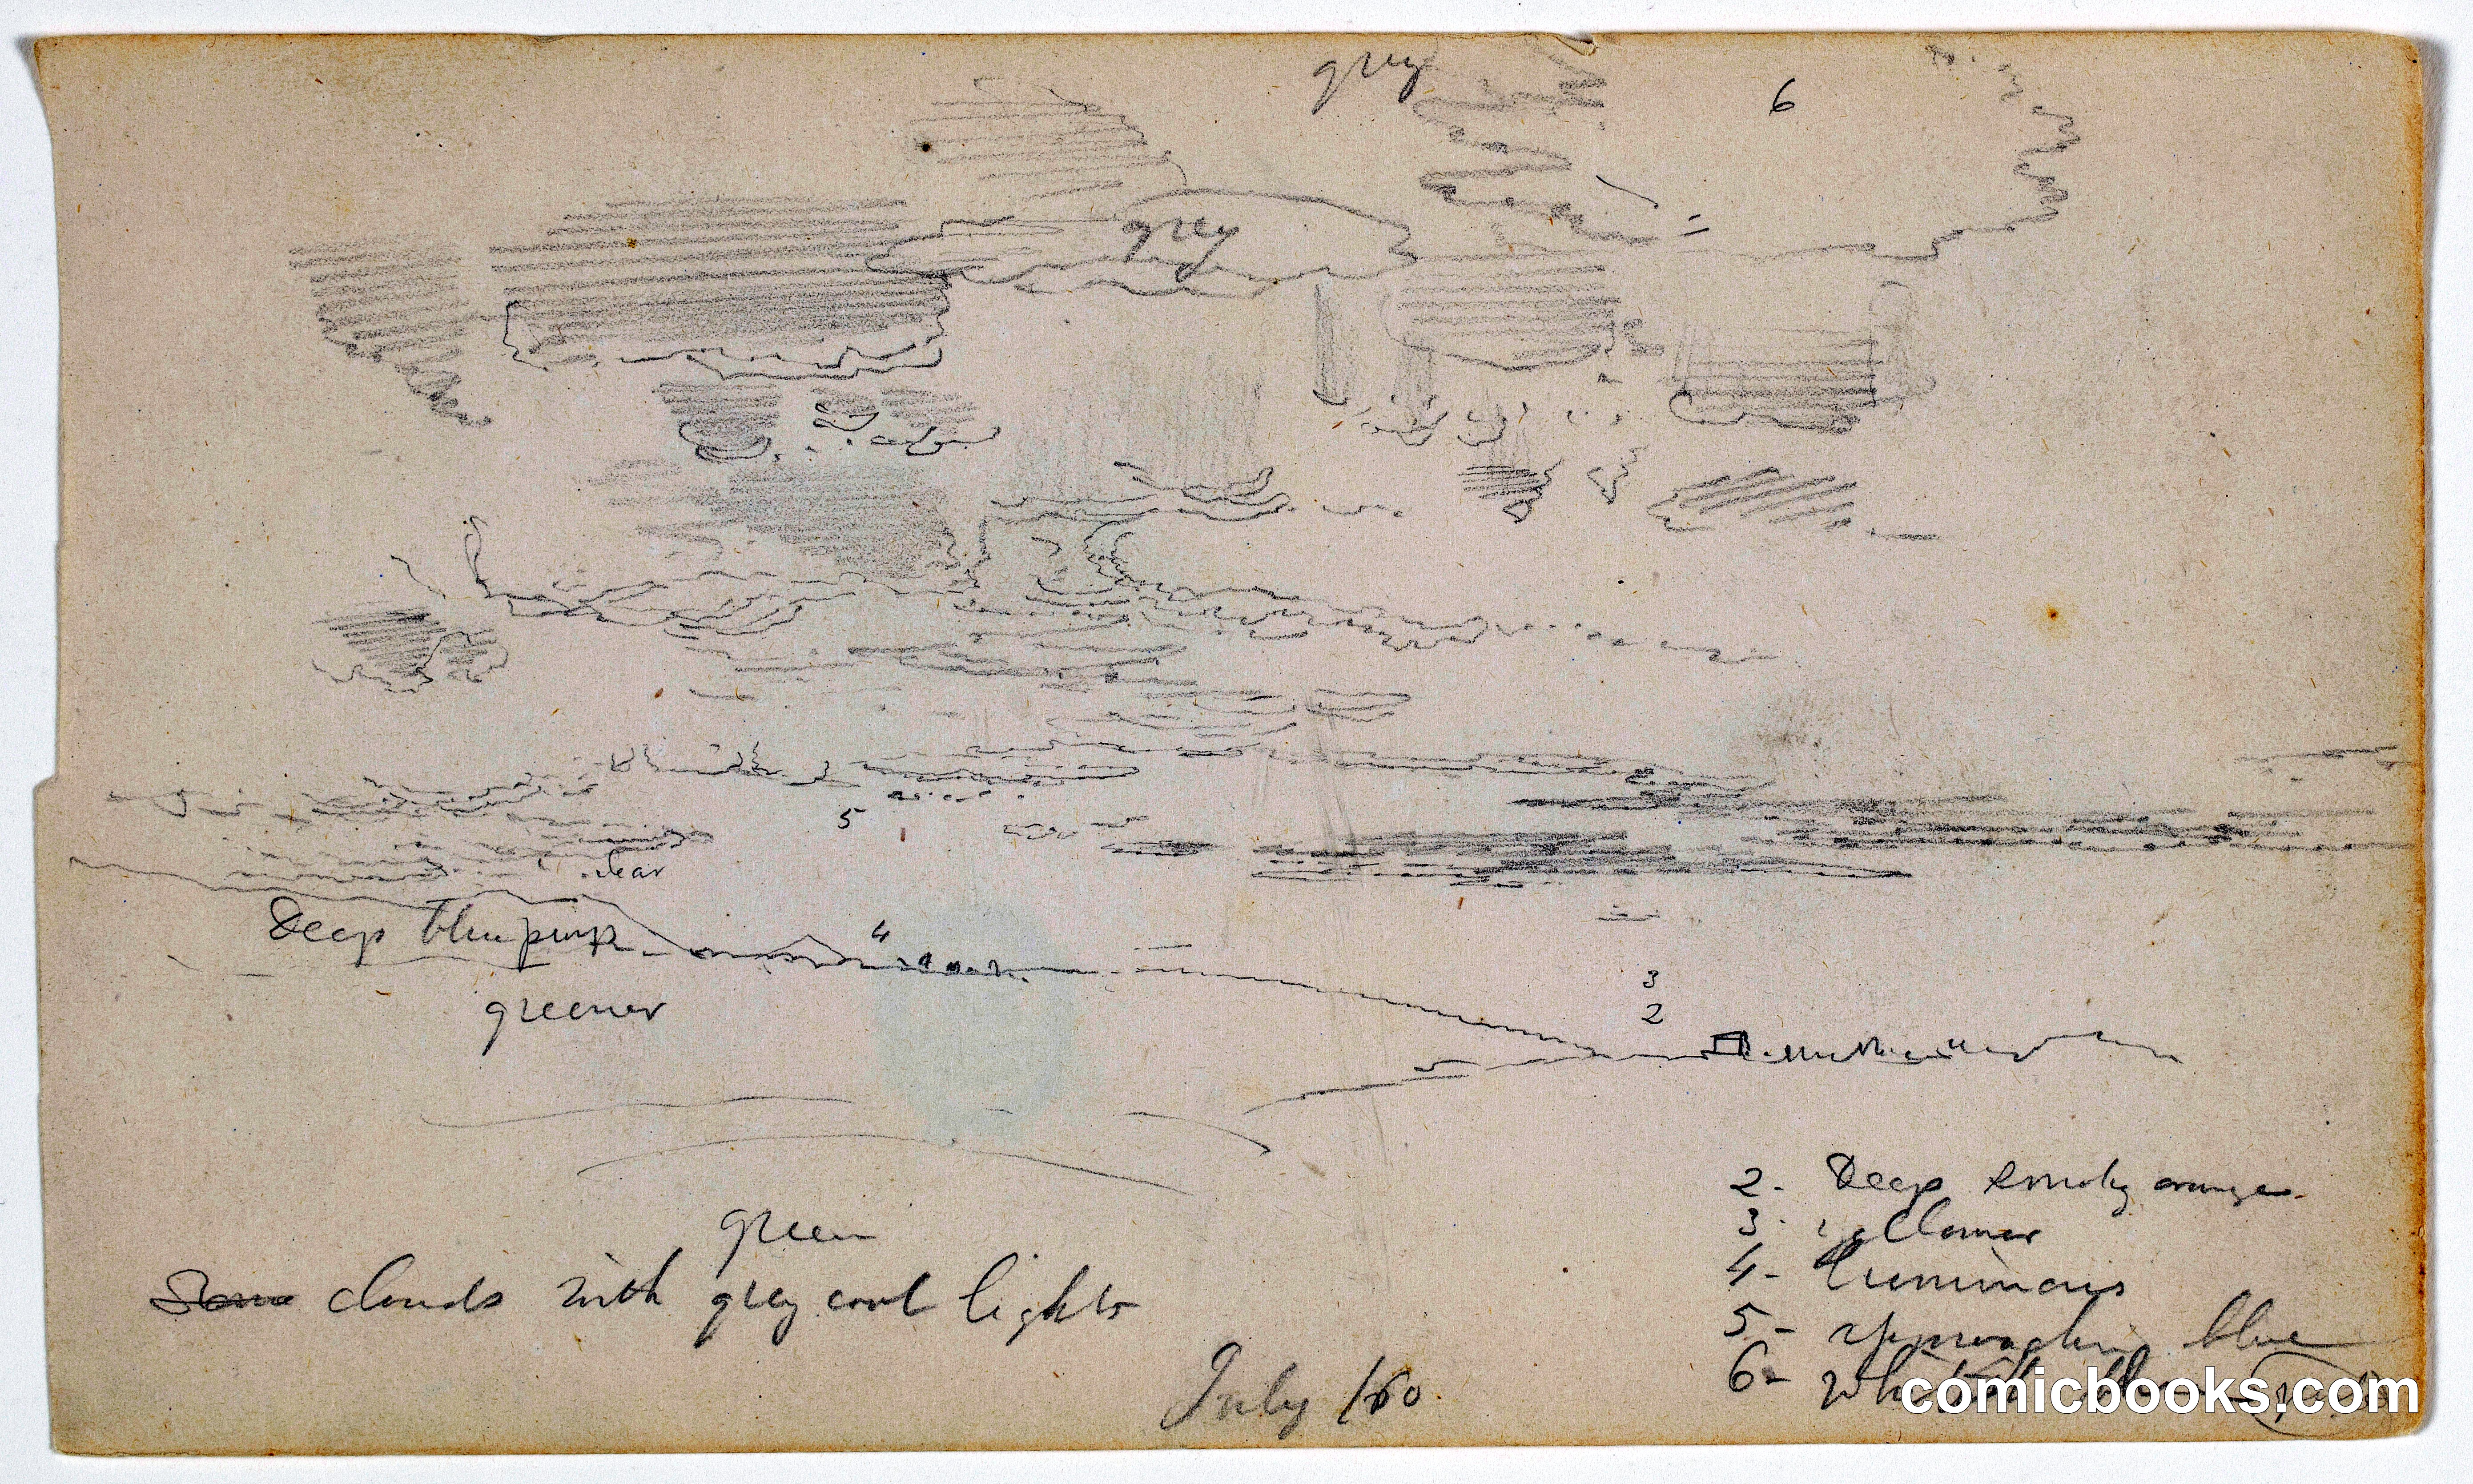 grey
6
grey
5
clear
Deep blue purp
4
greener
3
2
2 - Deep smoky orange
3 - yellower
green
4 - Luminous
clouds with grey cool lights
5 - approaching blue
6 -
July /60.
comicbooks.com